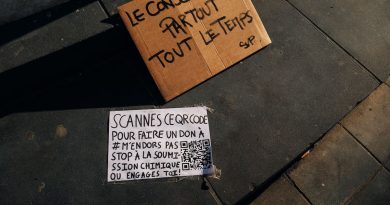 LE CONSE
PARTOUT
TOUT LE TEMPS
SVP
SCANNES CE QR CODE
POUR FAIRE UN DON À
# M'ENDORS PAS
STOP À LA SOUMI-
SSION CHIMIQUE
OU ENGAGES TOI!